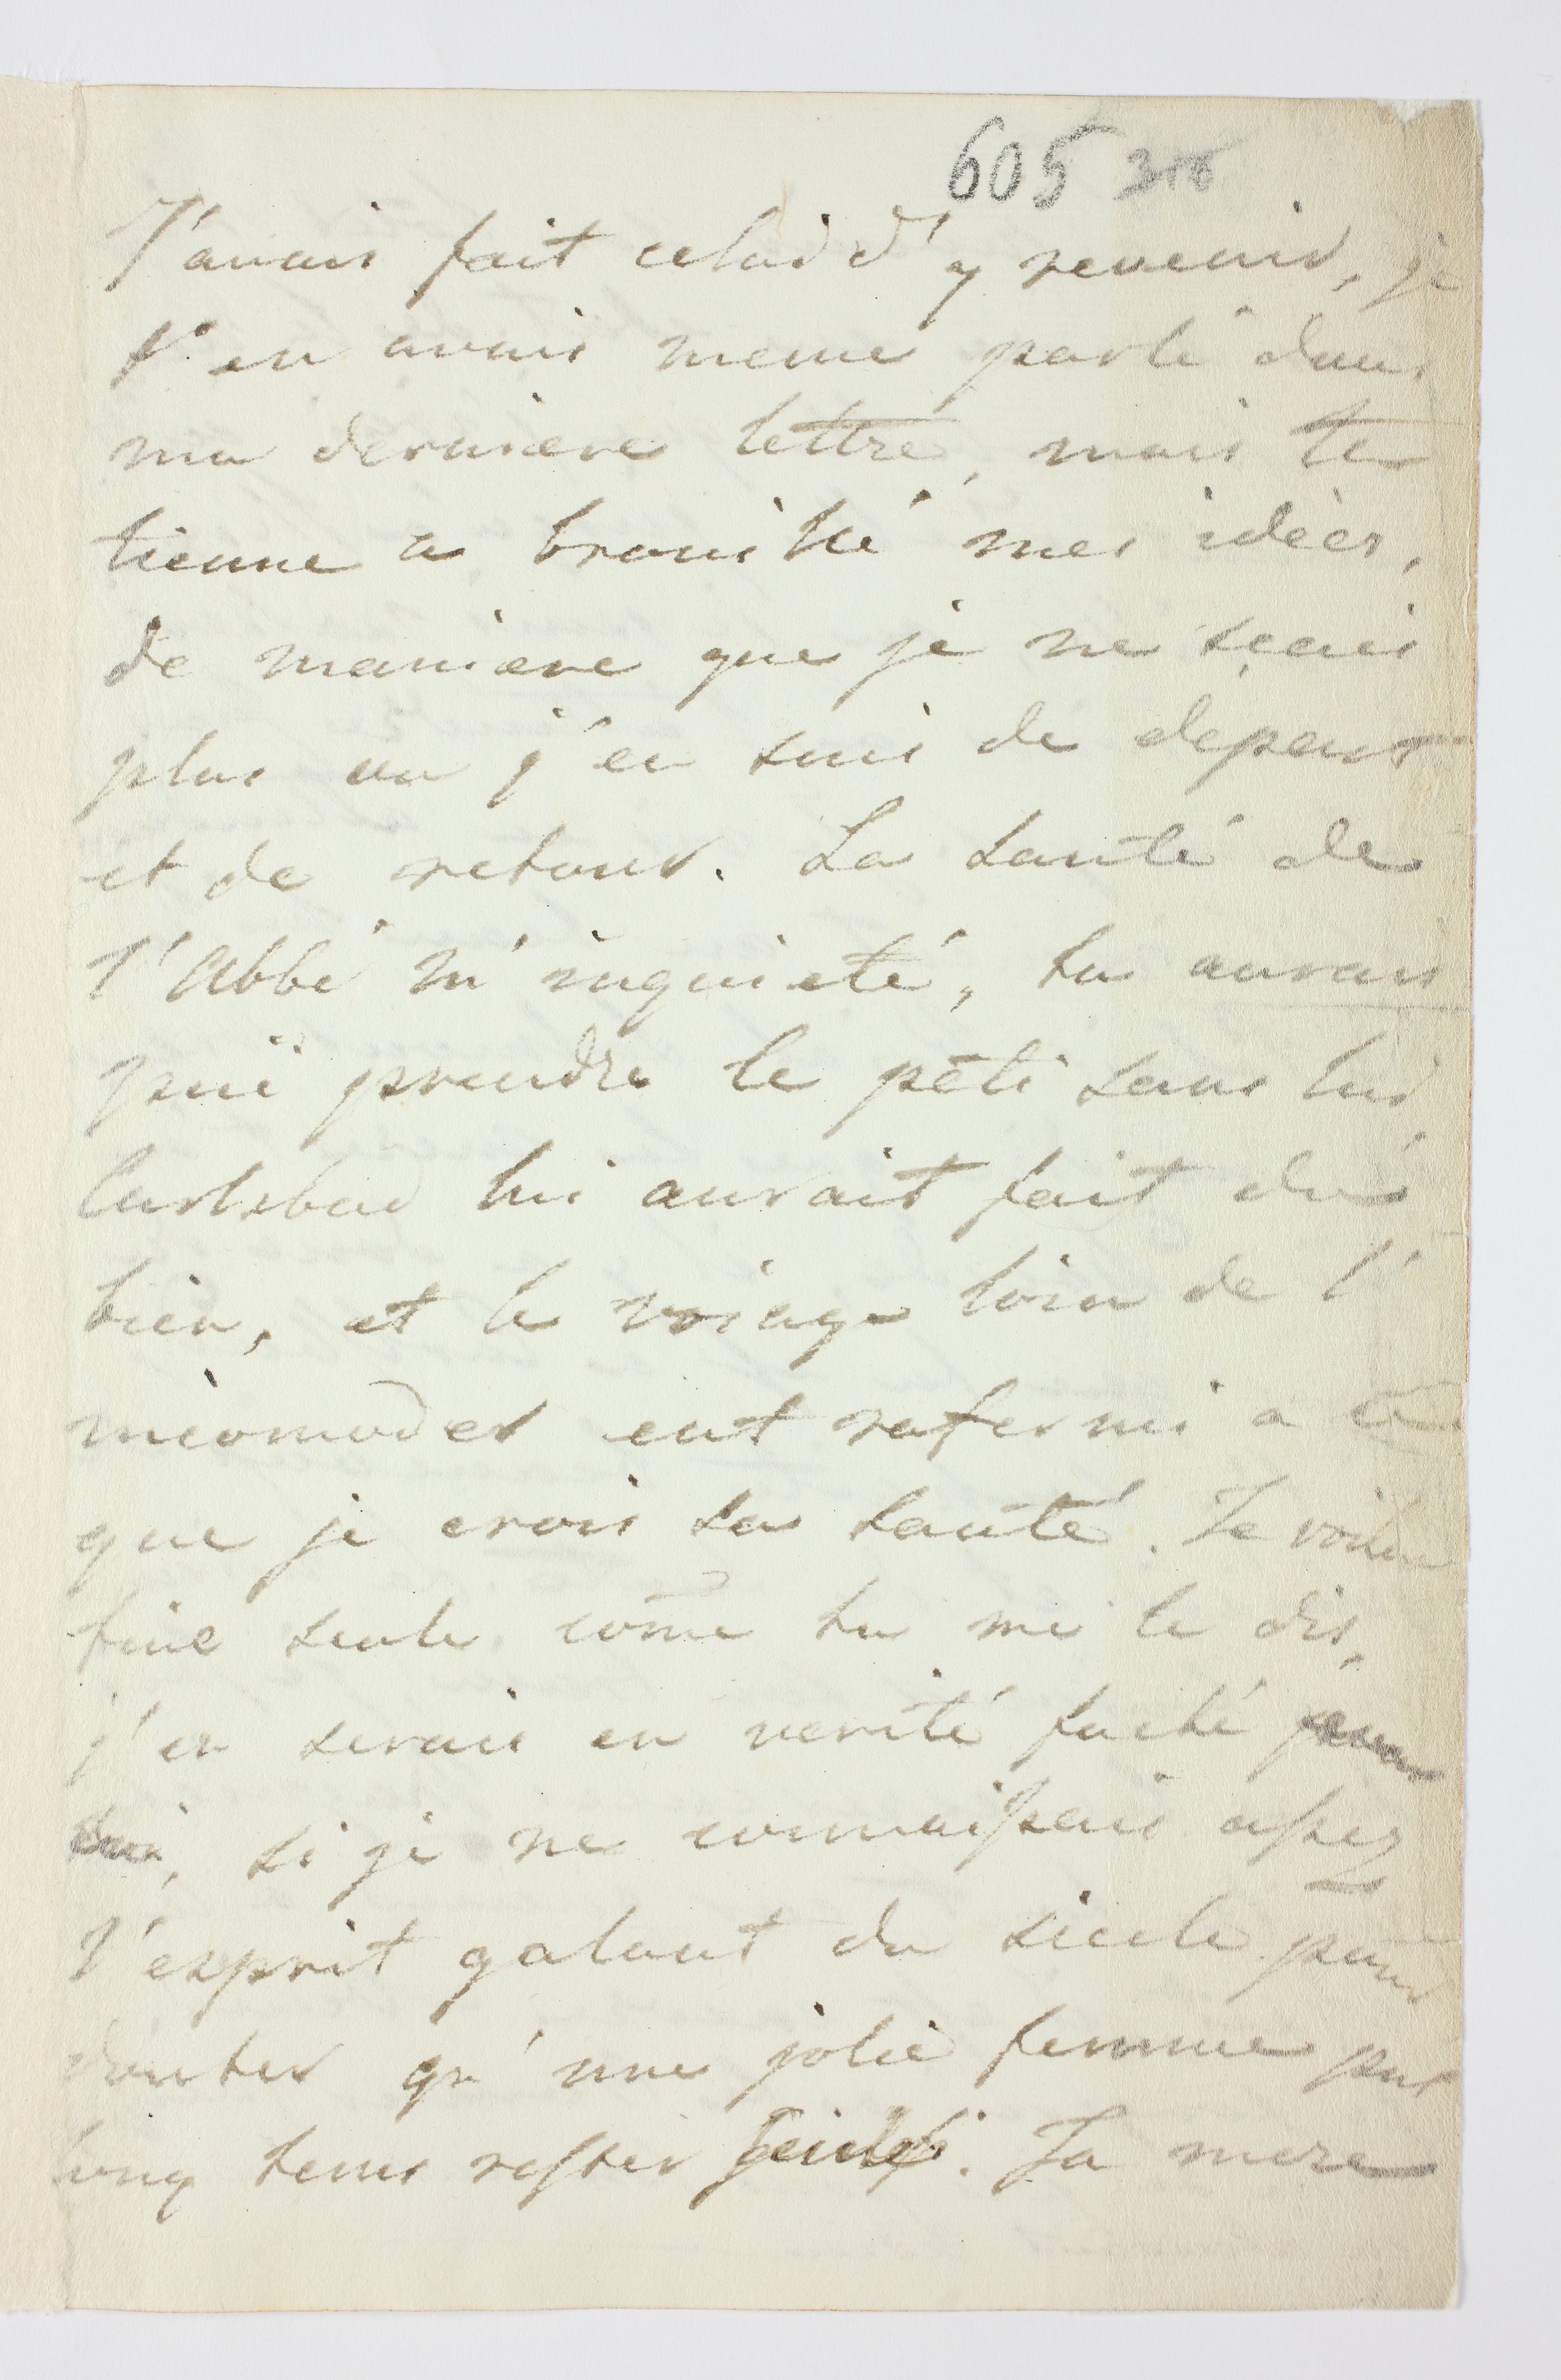 605 316
J'avais fait celui d'y revenir, je
t'en avais meme parlé dans
ma derniere lettre, mais la
tienne a brouillé mes idées,
de maniere que je ne sçais
plus ou j'en suis de depart
et de retour. La santé de
l'Abbé m'inquieté, tu aurais
pui prendre le péti sans lui
Carlsbad lui aurait fait du
bien, et le voiage loin de l'
incomoder eut rafermi a ce
que je crois sa santé. Te voila
seule come tu me le dis,
j'en serais en verité faché pour
toi, si je ne connaissais assez
l'esprit galant du siecle pour
douter qu'une jolie femme put
long tems rester seule. Ta mere